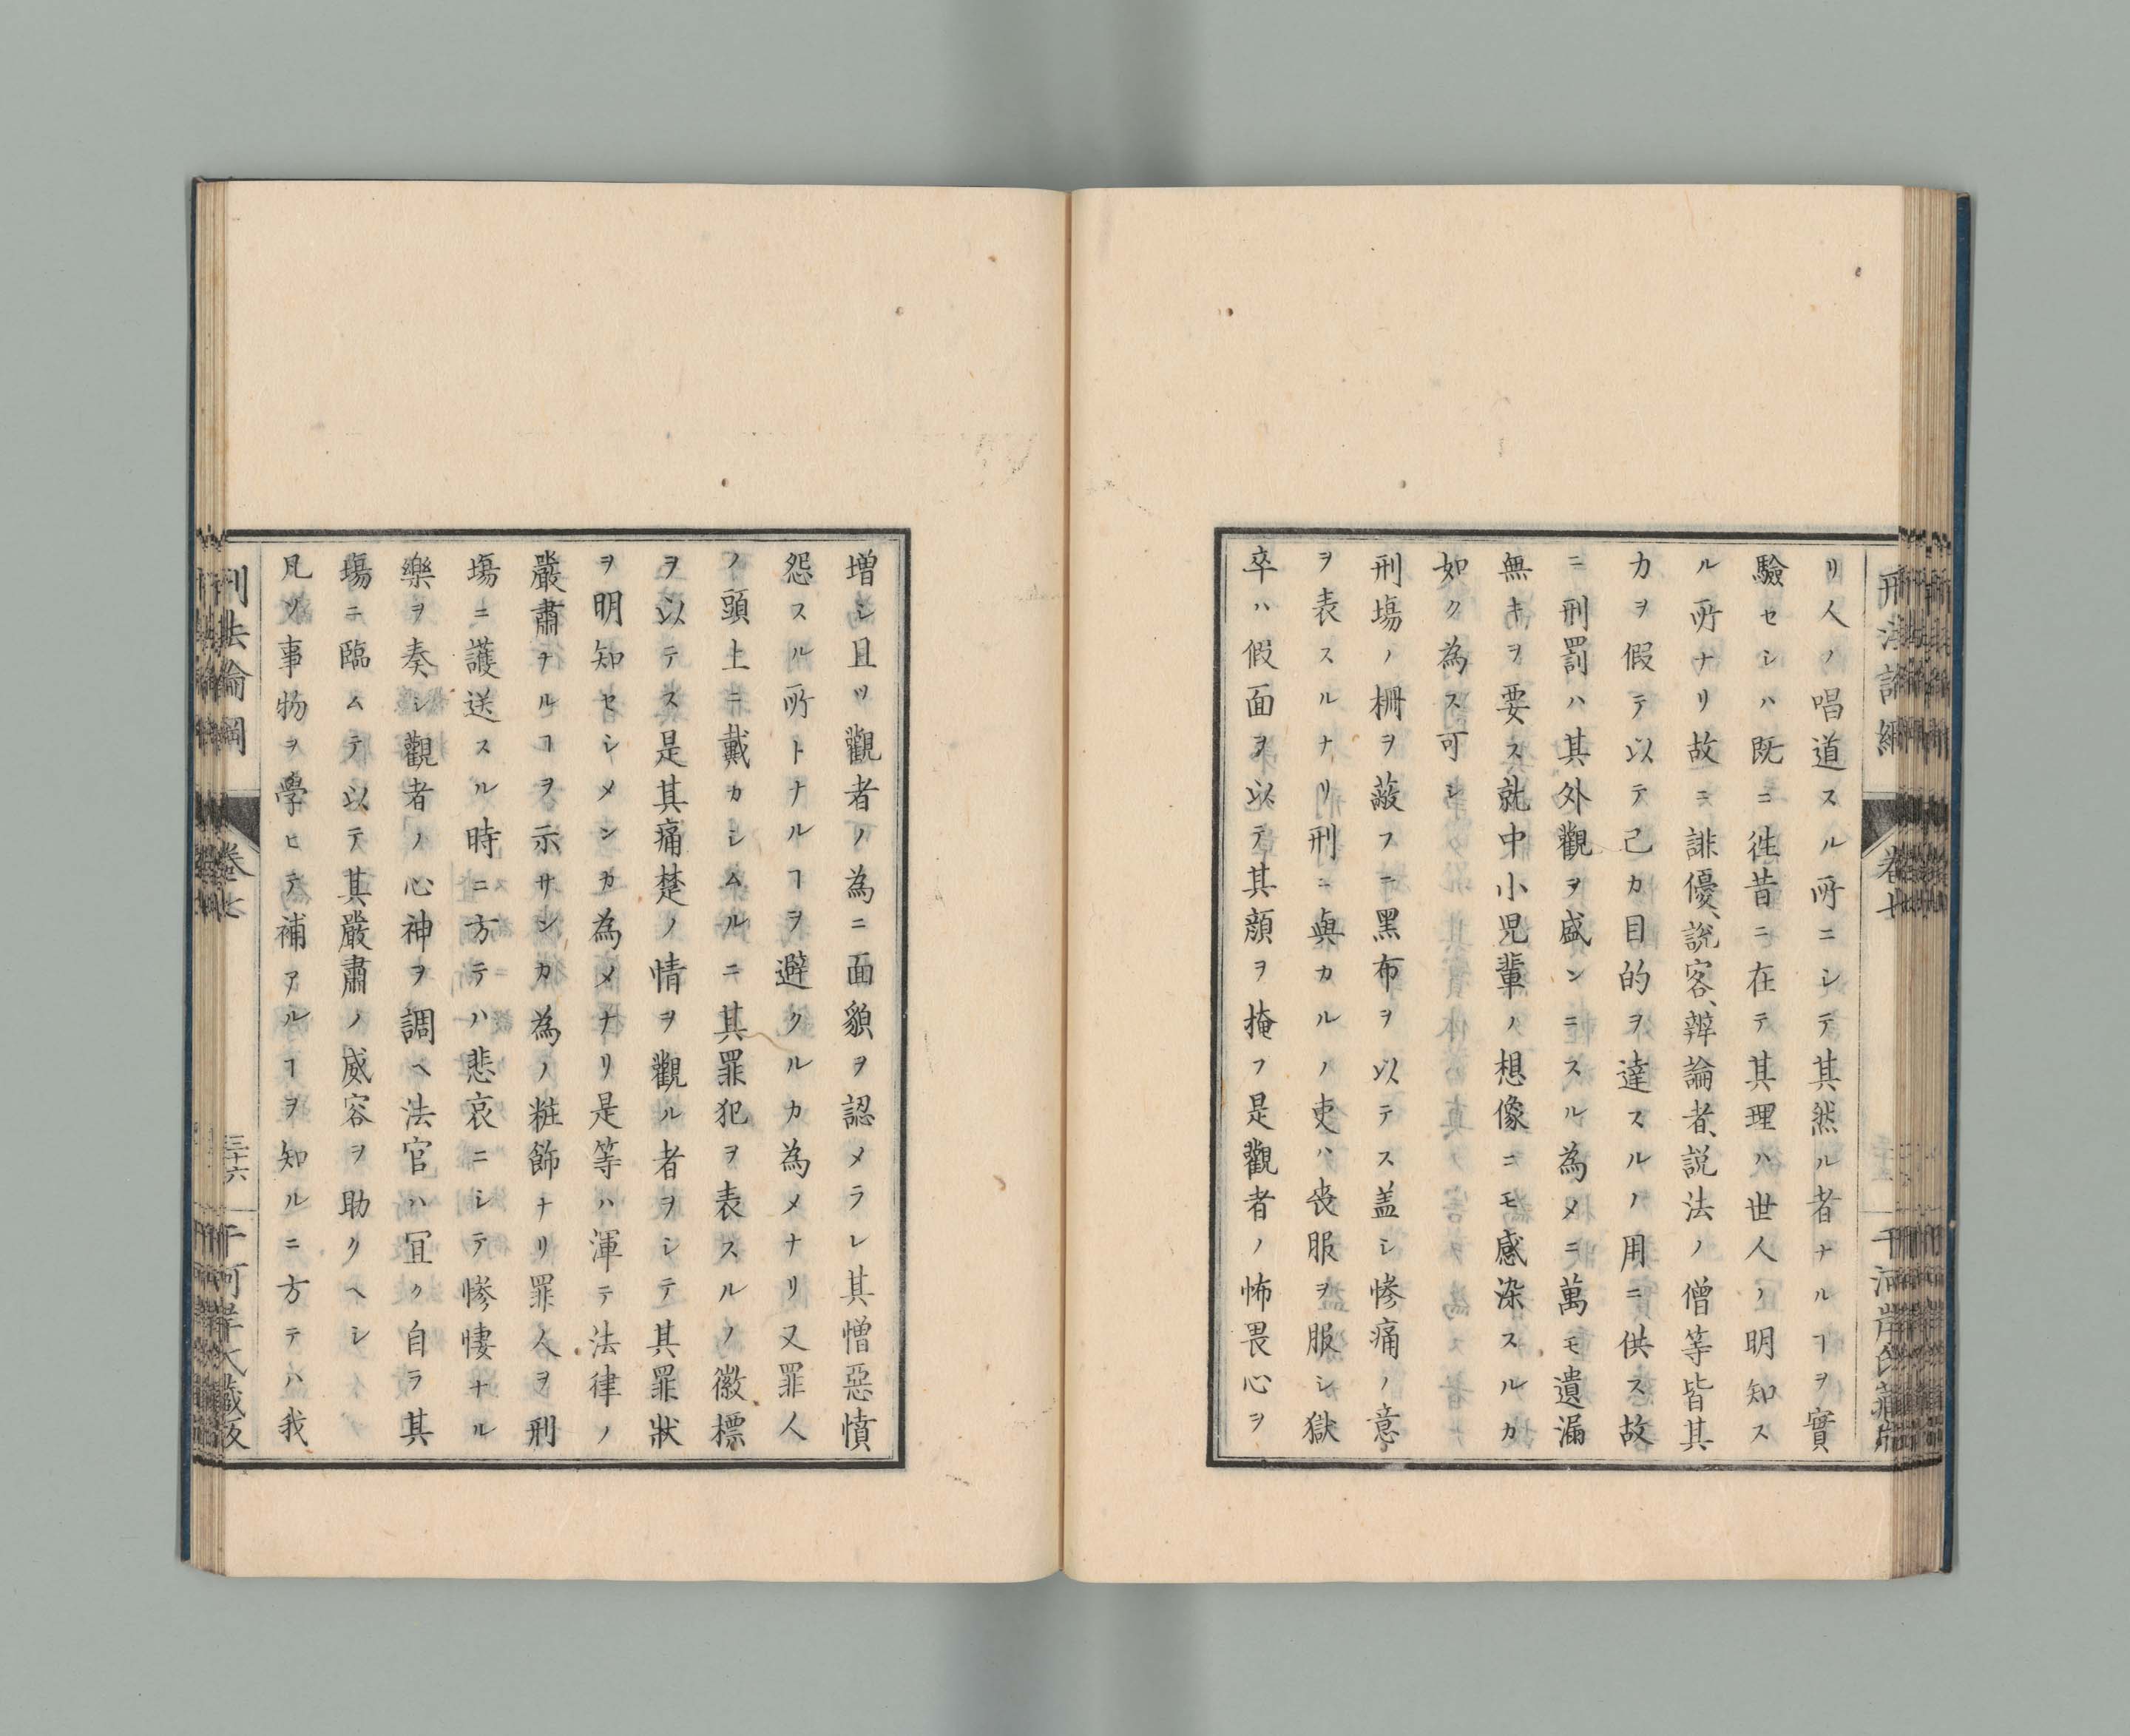 刑法論綱
卷七
リ人ノ唱道スル所ニシテ其然ル者ナルヿヲ實
驗セシハ既ニ徃昔ニ在テ其理ハ世人ノ明知ス
ル所ナリ故ニ誹優、說客、辯論者、説法ノ僧等皆其
力ヲ假テ以テ己カ目的ヲ達スルノ用ニ供ス故
ニ刑罰ハ其外觀ヲ盛ンニスル為メニ萬モ遺漏
無キヲ要ス就中小児輩ノ想像ニモ感染スルカ
如ク為ス可シ
刑塲ノ柵ヲ蔽フニ黑布ヲ以テス盖シ慘痛ノ意
ヲ表スルナリ刑ニ與カルノ吏ハ喪服ヲ服シ獄
卒ハ假面ヲ以テ其顔ヲ掩フ是觀者ノ怖畏心ヲ
増シ且ツ觀者ノ為ニ面貌ヲ認メラレ其憎惡憤
怨スル所トナルヿヲ避クルカ為メナリ又罪人
ノ頭上ニ戴カシムルニ其罪犯ヲ表スルノ徽標
ヲ以テス是其痛楚ノ情ヲ觀ル者ヲシテ其罪狀
ヲ明知セシメンカ為メナリ是等ハ渾テ法律ノ
嚴肅ナルヿヲ示サンカ為ノ粧飾ナリ罪人ヲ刑
塲ニ護送スル時ニ方テハ悲哀ニシテ慘悽ナル
樂ヲ奏シ觀者ノ心神ヲ調ヘ法官ハ冝ク自ラ其
塲ニ臨ムテ以テ其嚴肅ノ威容ヲ助クヘシ
凡ソ事物ヲ學ヒテ補ヲルヿヲ知ルニ方テハ我
刑法論綱
卷七
三十六
千河岸氏藏版